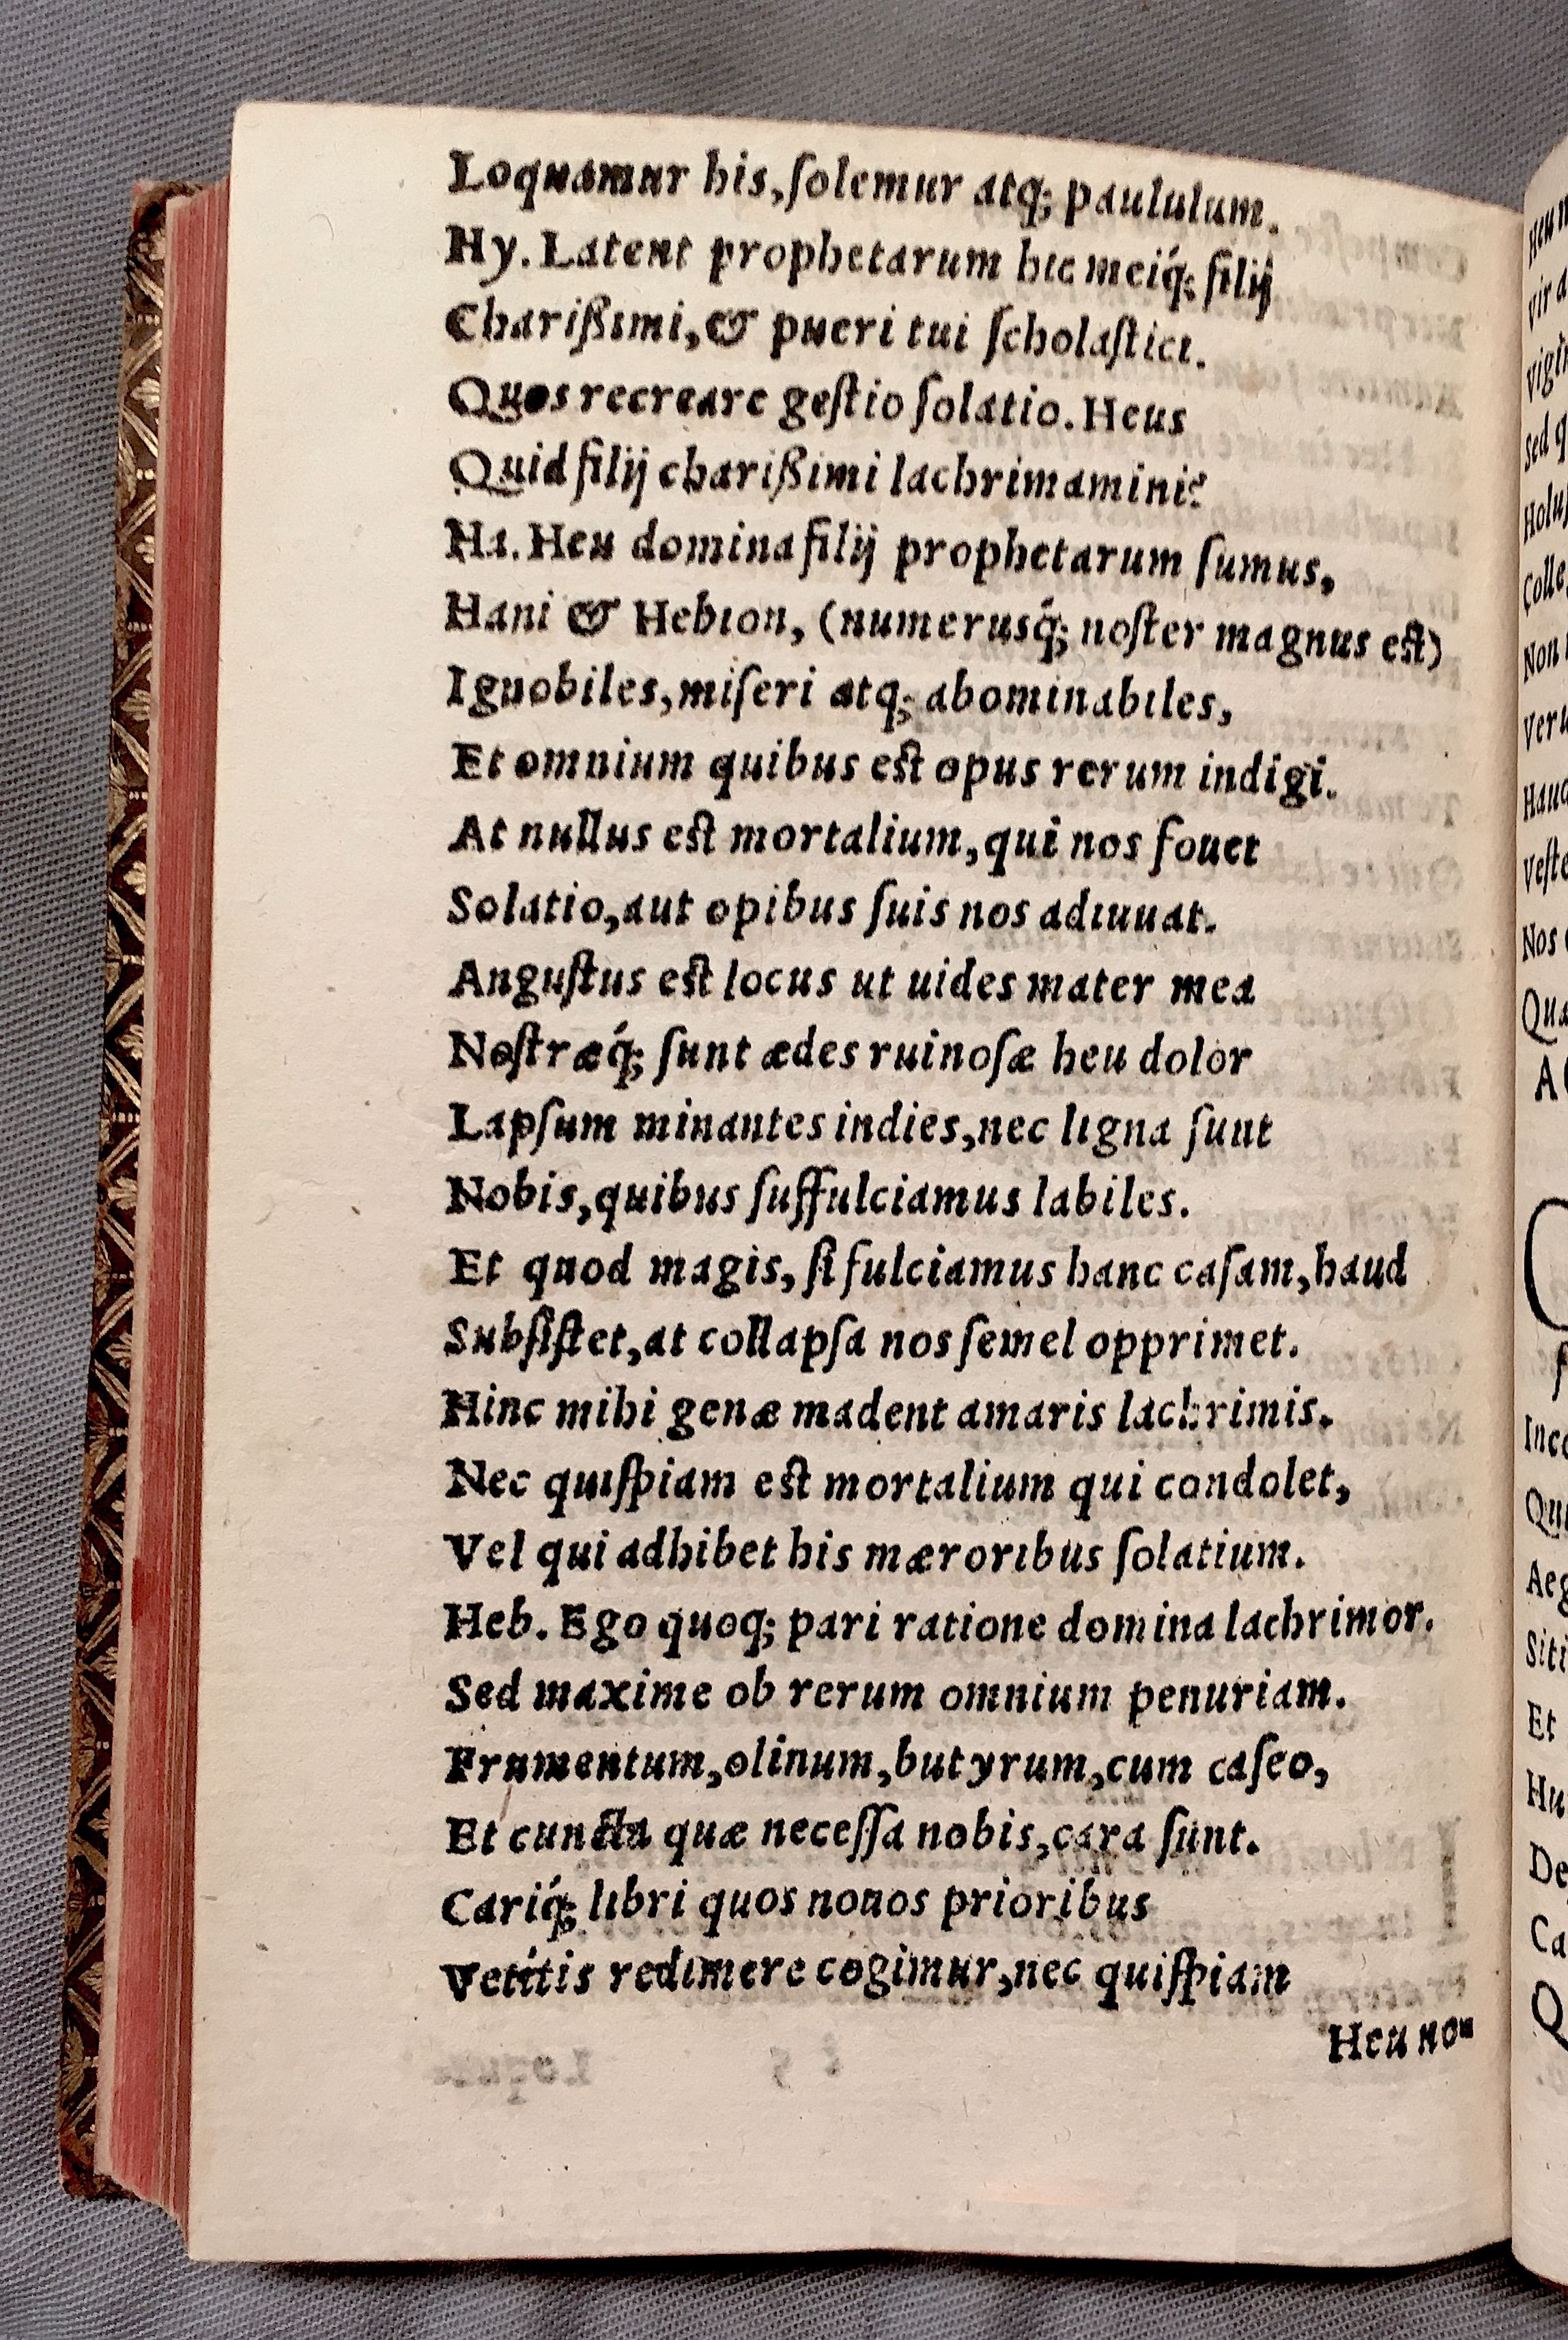 Loquamur his,ſolemur atq; paululum.
Hy. Latent prophetarum hic meiq́; filij
Charißimi,& pueri tui ſcholaſtici.
Quos recreare geſtio ſolatio. Heus
Quid filij charißimi lachrimamini?
Ha. Heu domina filij prophetarum ſumus,
Hani & Hebion, (numerusq́; noſter magnus eſt)
Ignobiles,miſeri atq; abominabiles,
Et omnium quibus eſt opus rerum indigi.
At nullus eſt mortalium,qui nos fouet
Solatio,aut opibus ſuis nos adiuuat.
Anguſtus eſt locus ut uides mater mea
Noſtræq́; ſunt ædes ruinoſæ heu dolor
Lapſum minantes indies,nec ligna ſunt
Nobis,quibus ſuffulciamus labiles.
Et quod magis, ſi fulciamus hanc caſam,haud
Subſiſtet,at collapſa nos ſemel opprimet.
Hinc mihi genæ madent amaris lachrimis.
Nec quiſpiam eſt mortalium qui condolet,
Vel qui adhibet his mæroribus ſolatium.
Heb. Ego quoq; pari ratione domina lachrimor.
Sed maxime ob rerum omnium penuriam.
Frumentum,olinum,butyrum,cum caſeo,
Et cuncta quæ neceſſa nobis,cara ſunt.
Cariq́; libri quos nouos prioribus
Vetitis redimere cogimur,nec quiſpiam
Heu non